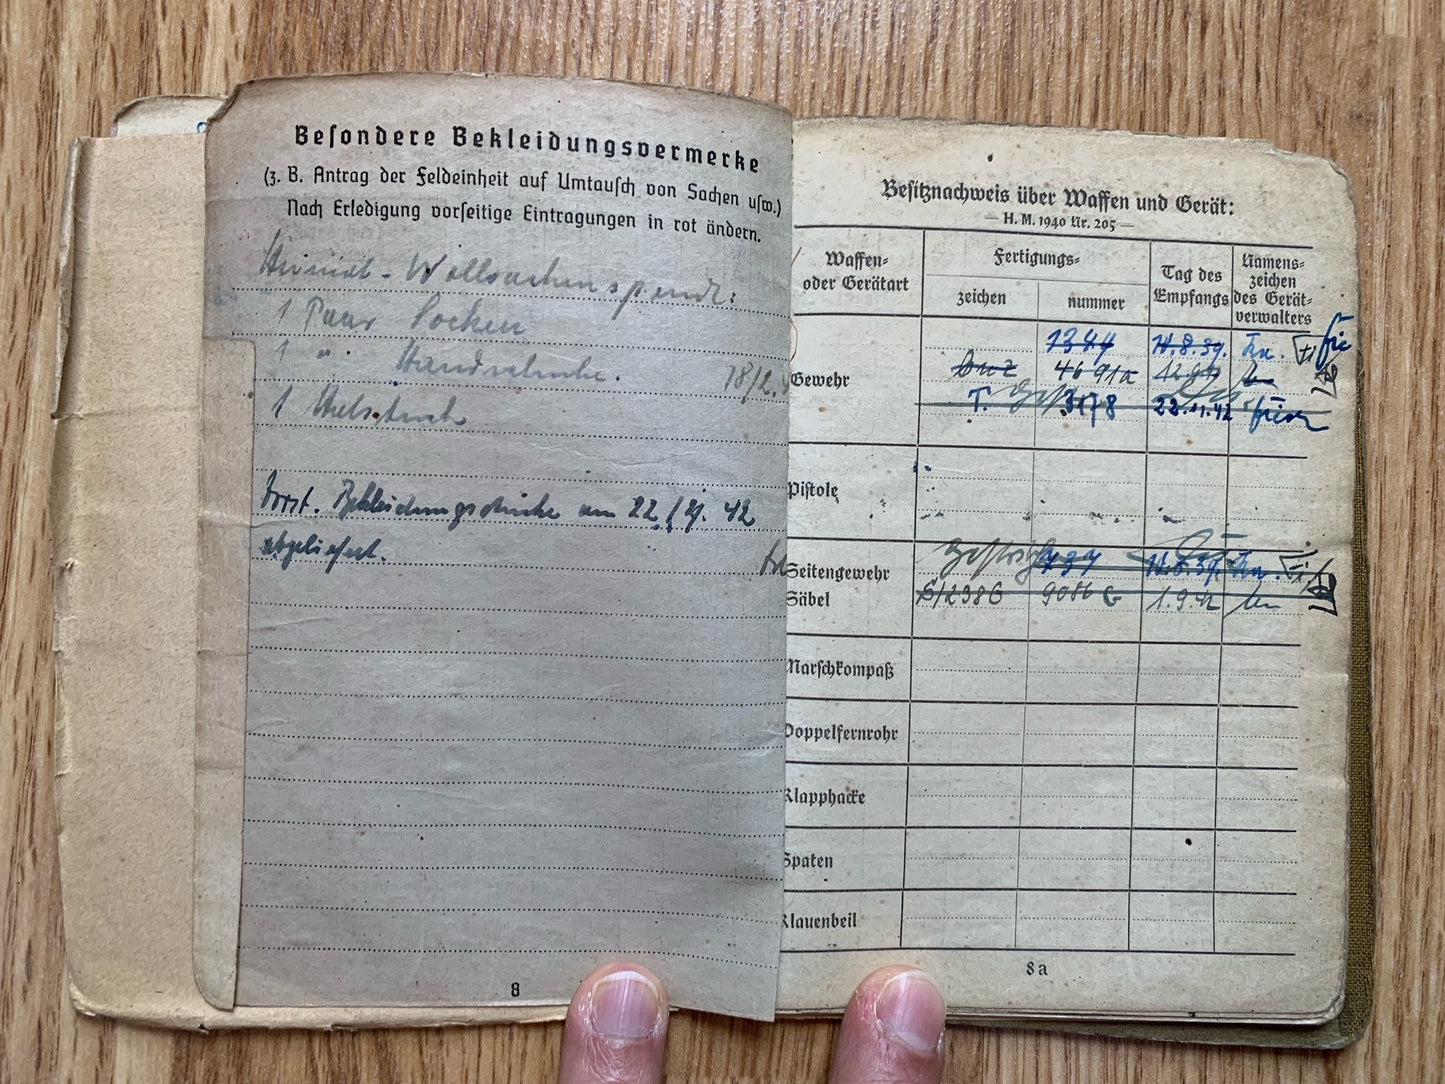 Besondere Bekleidungsvermerke
(z. B. Antrag der Feldeinheit auf Umtausch von Sachen usw.)
Nach Erledigung vorseitige Eintragungen in rot ändern.
Heimat-Wollsachenspende:
1 Paar Socken
1 " Handschuhe. 18/2.
1 Halstuch
Vorst. Bekleidungsstücke am 22. 42
abgeliefert.
8
Besitznachweis über Waffen und Gerät:
— H. M. 1940 Nr. 205 —
Waffen- oder Gerätart
Fertigungs-
zeichen
nummer
Tag des Empfangs
Namens- zeichen des Gerät- verwalters
1344
Gewehr
4691a
T. 3178 22.11.42
Pistole
Seitengewehr
Säbel
S/238G 9086 G 1.9.42
Marschkompaß
Doppelfernrohr
Klapphacke
Spaten
Klauenbeil
8a